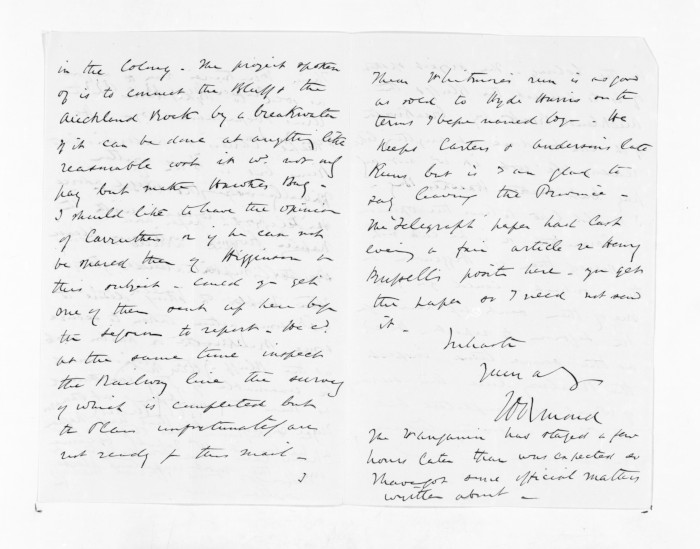 in the Colony - The project spoken
of is to connect the Bluff & the
Auckland Rock by a breakwater
if it can be done at anything like
reasonable cost it wd. not only
pay but make Hawkes Bay -
I should like to have the opinion
of Carruthers or if he can not
be shared then of Higginson on
this subject - could you get
one of them sent up here before
the session to report - He cd.
at the same time inspect
the Railway line the survey
of which is completed but
the Plans unfortunately are
not ready for this mail -
I
Whitmore's run is as good
as sold to Hyde Harris on the
terms I before named to you - He
keeps Carters & Andersons late
Runs but is I am glad to
say leaving the Province -
The Telegraph paper had last
evening a fair article re Henry
Russell's position here - you get
the paper so I need not send
it -
In haste
Yours always
JD Ormond
The Wanganui has stayed a few
hours later than was expected so
I have got some official matters
written about -